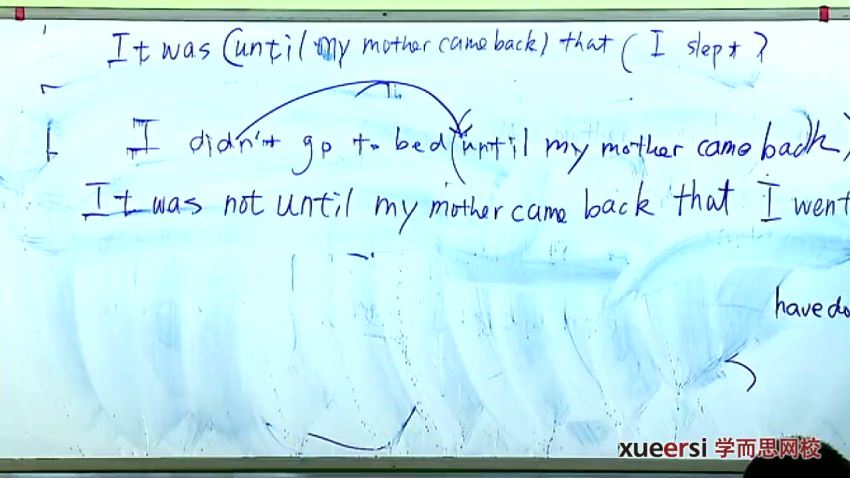 It was (until my mother came back) that ( I slept )
I didn't go to bed (until my mother came back)
It was not until my mother came back that I went
have do
xueersi 学而思网校